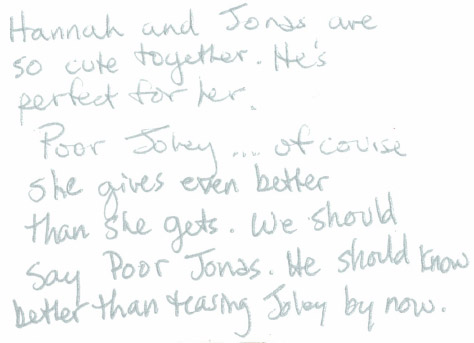 Hannah and Jonas are
so cute together. He's
perfect for her.
Poor Joley .... of course
she gives even better
than she gets. We should
say Poor Jonas. He should know
better than teasing Joley by now.